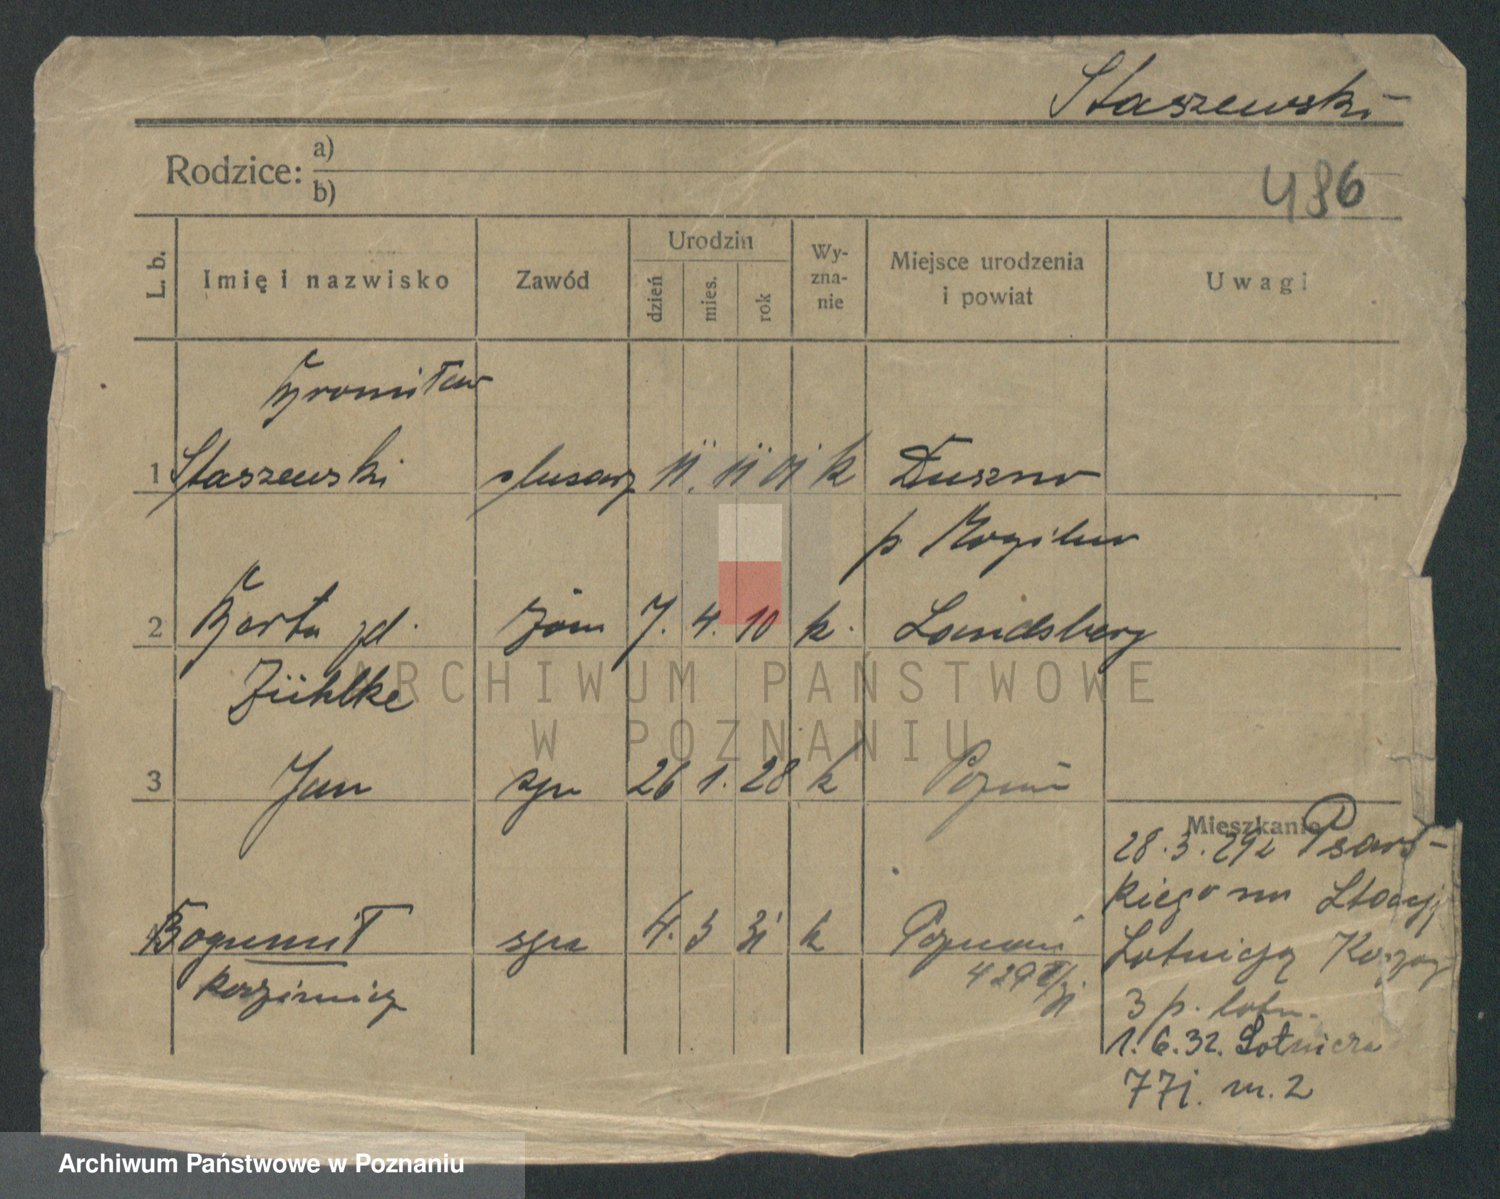 Staszewski
Rodzice: a)
b)
486
L. b.
Imię i nazwisko
Zawód
Urodzin
dzień
mies.
rok
Wy-
zna-
nie
Miejsce urodzenia
i powiat
Uwagi
Bronisław
1 Staszewski ślusarz 11. 11 01 k Duszno
p Mogilno
2 Berta zd. żona 7. 4. 10 k. Landsberg
Zühlke
3 Jan syn 26 1. 28 k Poznań
Bogumił syn 4. 3 31 k Poznań
Kazimierz
Mieszkanie
28.3.292 Psars-
kiego na Stacji
Lotniczą
3 p. lotn.
1.6.32. Lotnicza
77j. m. 2
ARCHIWUM PAŃSTWOWE
W POZNANIU
Archiwum Państwowe w Poznaniu